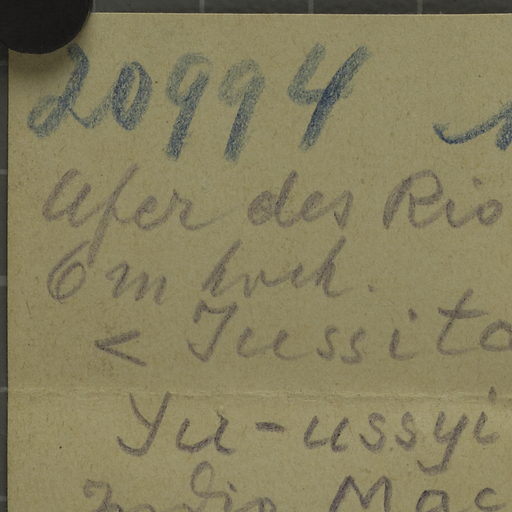 20994
Ufer des Rio
6 m hoch.
< Jussito
Yu-ussyi
India Mac